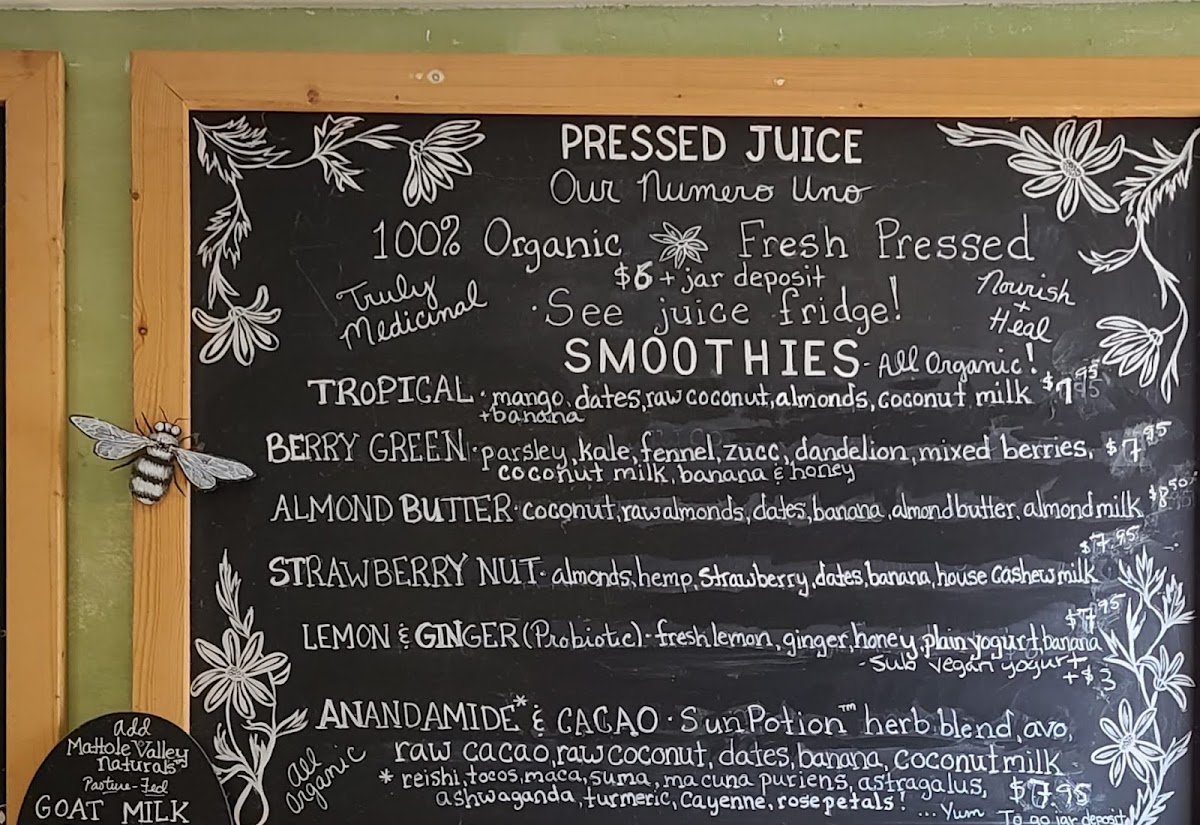 PRESSED JUICE
Our Numero Uno
100% Organic Fresh Pressed
$6 + jar deposit
Truly
Medicinal
Nourish
+
Heal
·See juice fridge!
SMOOTHIES - All Organic!
TROPICAL · mango, dates, raw coconut, almonds, coconut milk $7.95
+banana
BERRY GREEN · parsley, kale, fennel, zucc, dandelion, mixed berries, $7.95
coconut milk, banana & honey
ALMOND BUTTER · coconut, raw almonds, dates, banana, almond butter, almond milk $8.50
$7.95
STRAWBERRY NUT · almonds, hemp, strawberry, dates, banana, house cashew milk
$7.95
LEMON & GINGER (Probiotic) · fresh lemon, ginger, honey, plain yogurt, banana
- Sub vegan yogurt
+$3
ANANDAMIDE* & CACAO · SunPotion™ herb blend, avo,
raw cacao, raw coconut, dates, banana, coconut milk
All
Organic
* reishi, tocos, maca, suma, macuna puriens, astragalus,
ashwaganda, turmeric, cayenne, rose petals! $7.95
...Yum To go jar deposit
add
Mattole Valley
Naturals
Pasture-Fed
GOAT MILK